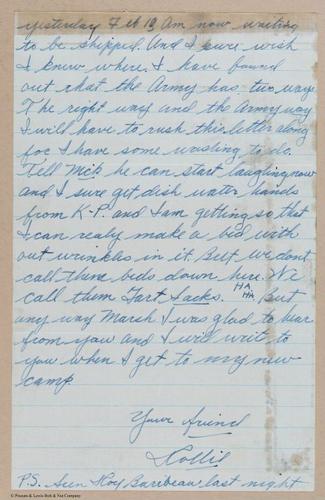 yesterday Feb 19 Am now waiting
to be shipped. And I sure wish
I knew where. I have found
out that the Army has two ways
The right way and the Army way
I will have to rush this letter along
for I have some washing to do.
Tell Mick he can start laughing now
and I sure get dish water hands
from K-P. and I am getting so that
I can realy make a bed with
out wrinkles in it. But we dont
call them beds down here. We
call them Fart Sacks. HA HA But
any way March I was glad to hear
from you and I will write to
you when I get to my new
camp
Your friend
Rollie
P.S. Seen Roy Baribeau last night
© Preston & Lewis Bolt & Nut Company